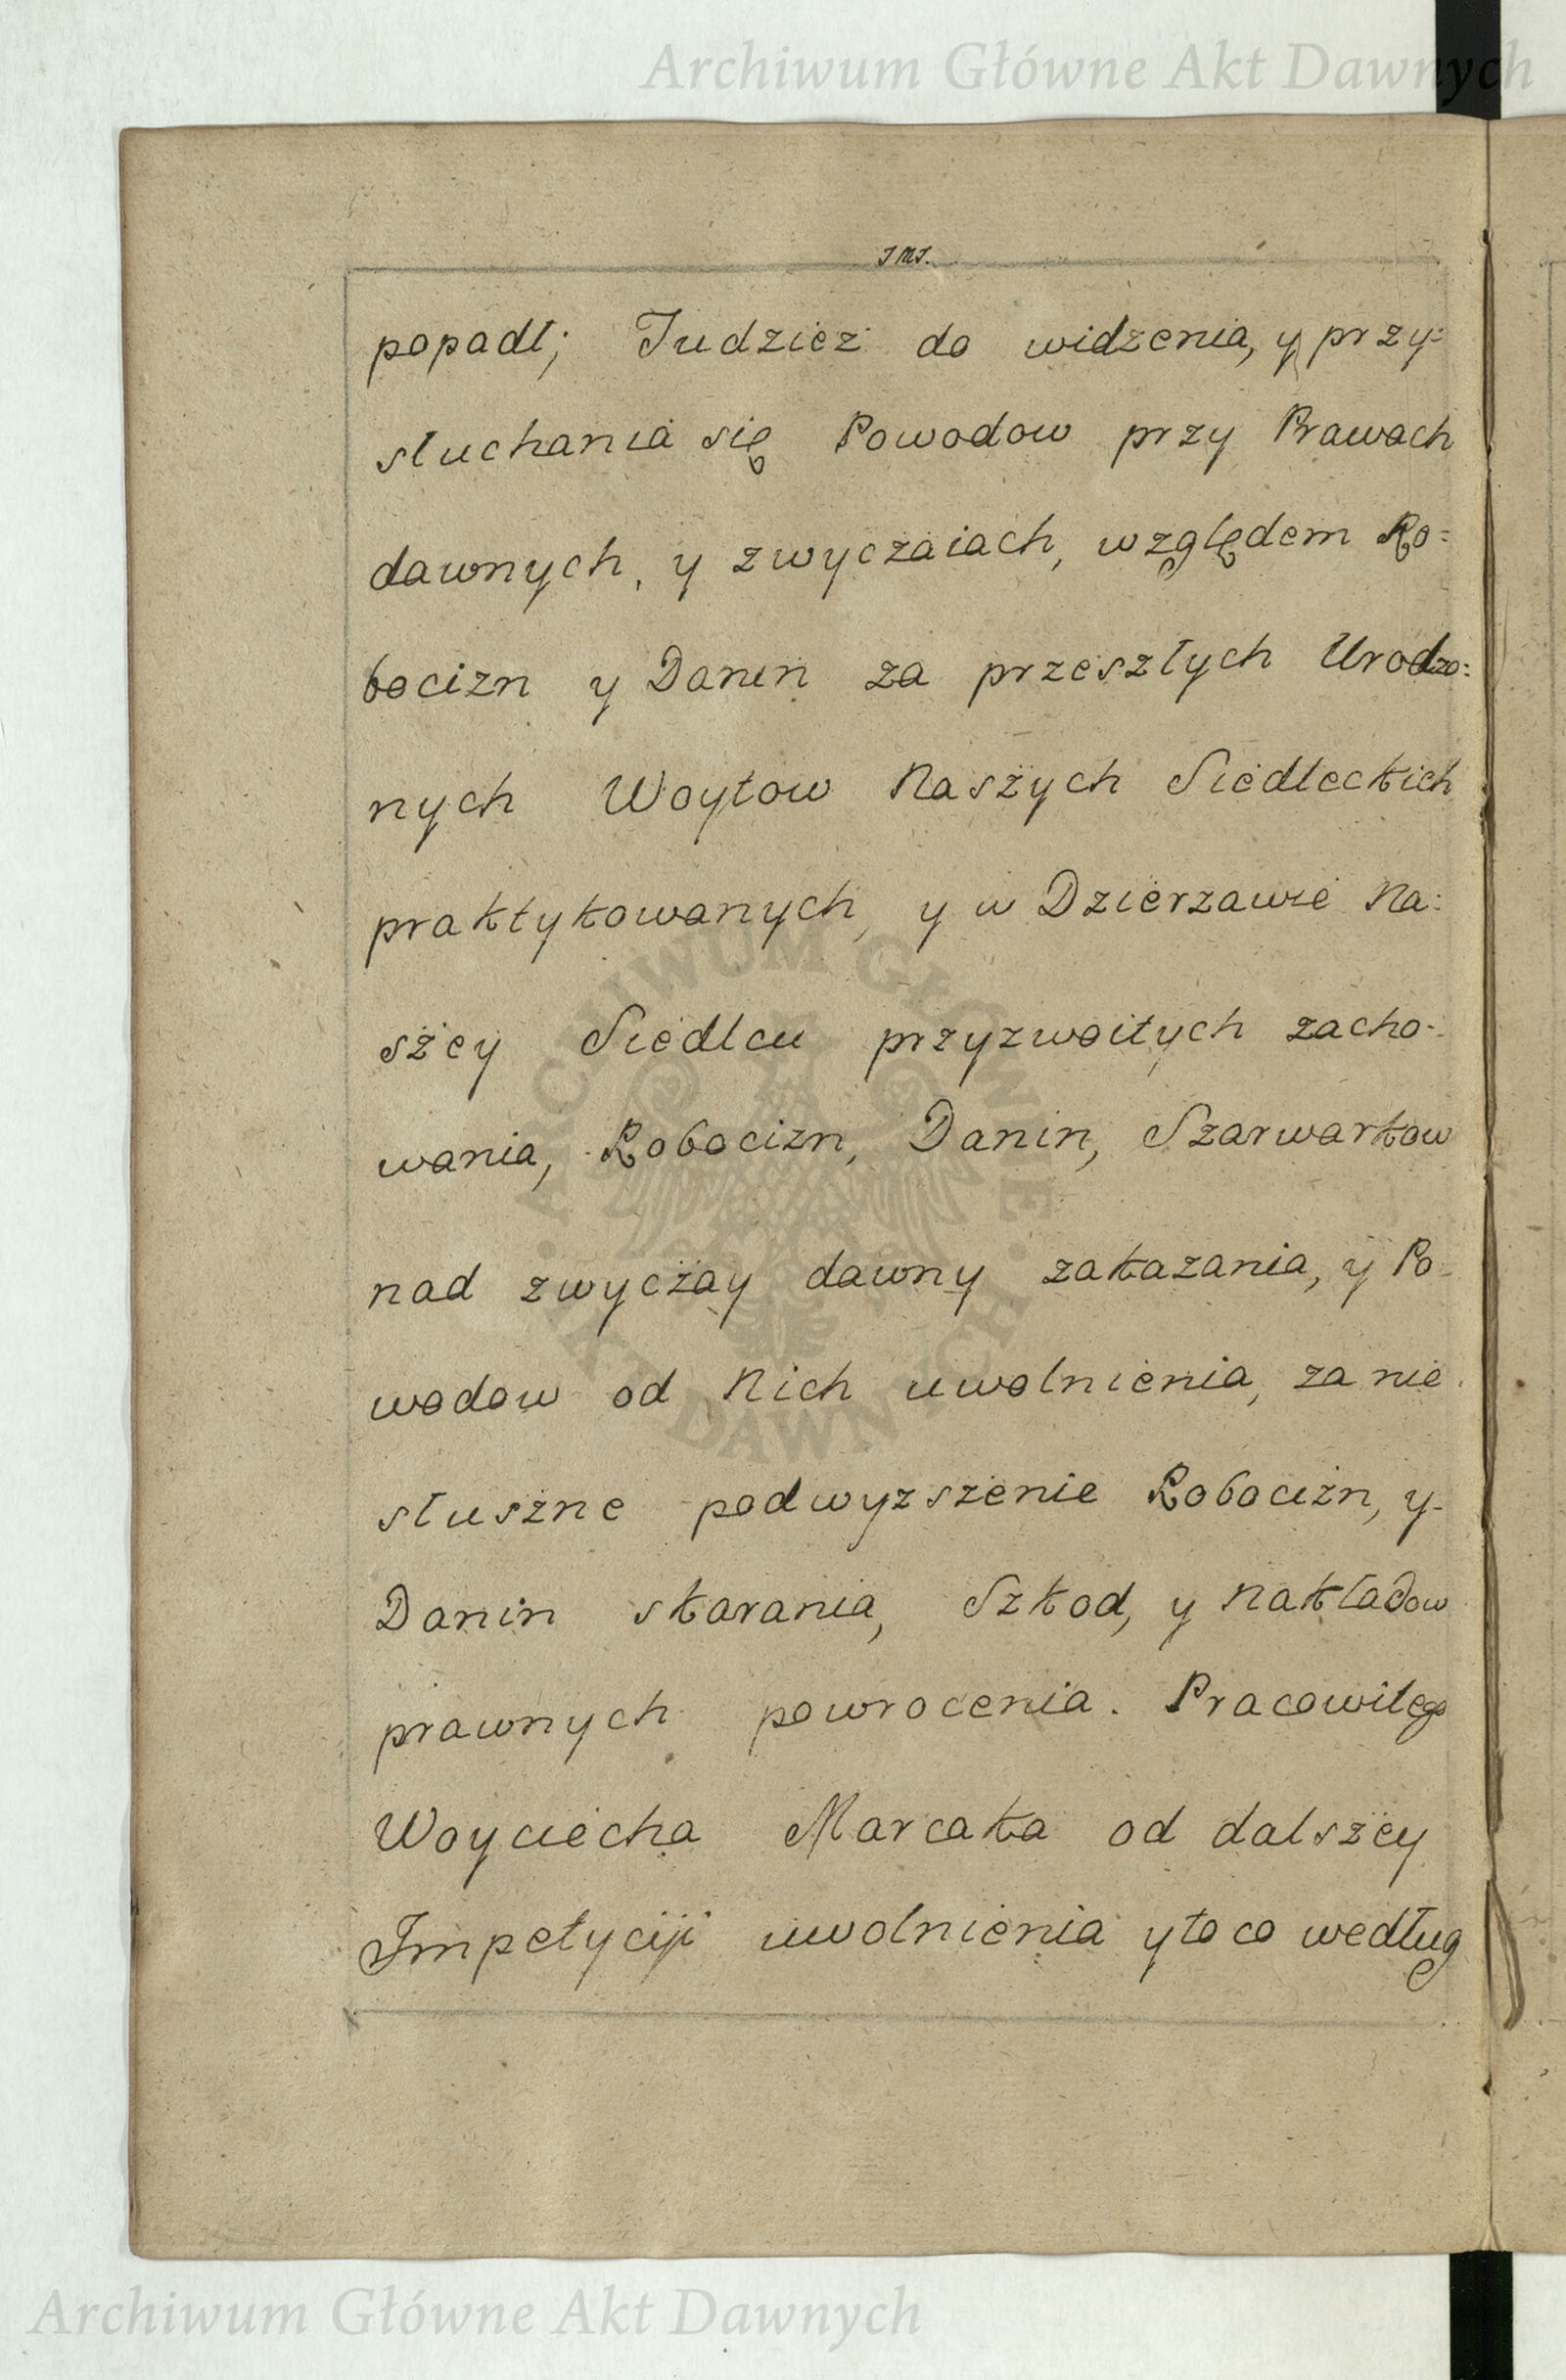 Archiwum Główne Akt Dawnych
JMJ.
popadł; Tudziez do widzenia, y przy:
słuchania się Powodow przy Prawach
dawnych, y zwyczaiach, względem Ro:
bocizn y Danin za przeszłych Urodzo:
nych Woytow Naszych Siedleckich
praktykowanych, y w Dzierzawie Na:
szey Siedlcu przyzwoitych zacho:
wania, Robocizn, Danin, Szarwarkow
nad zwyczay dawny zakazania, y Po-
wodow od Nich uwolnienia, za nie
słuszne podwyzszenie Robocizn, y
Danin skarania, Szkod, y Nakładow
prawnych powrocenia. Pracowitego
Woyciecha Marcaka od dalszey
Impetycyi uwolnienia y to co według
ARCHIWUM GŁÓWNE
AKT DAWNYCH
Archiwum Główne Akt Dawnych